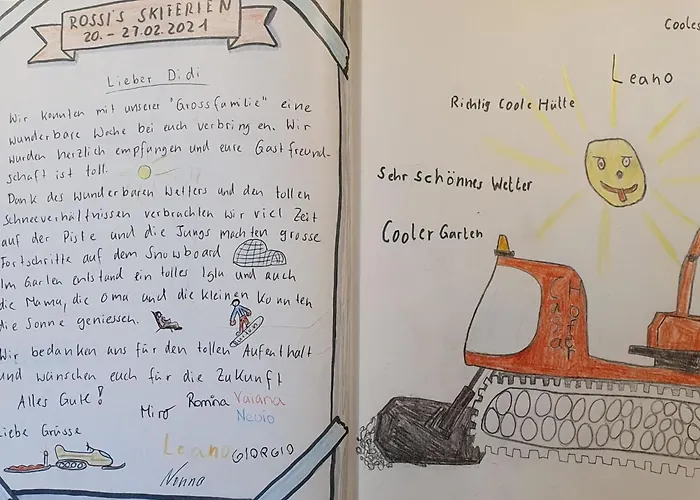 ROSSI'S SKIFERIEN
20. - 27.02.2021
Lieber Didi
Wir konnten mit unserer "Grossfamilie" eine
wunderbare Woche bei euch verbringen. Wir
wurden herzlich empfangen und eure Gastfreund-
schaft ist toll.
Dank des wunderbaren Wetters und den tollen
Schneeverhältnissen verbrachten wir viel Zeit
auf der Piste und die Jungs machten grosse
Fortschritte auf dem Snowboard
Im Garten entstand ein tolles Iglu und auch
die Mama, die Oma und die kleinen konnten
die Sonne geniessen.
Wir bedanken uns für den tollen Aufenthalt
und wünschen euch für die Zukunft
Alles Gute!
Miro Romina Vaiana
Nevio
Liebe Grüsse
Leano GIORGIO
Nonna
Cooles
Leano
Richtig Coole Hütte
Sehr schönnes Wetter
Cooler Garten
Casa
Hofer